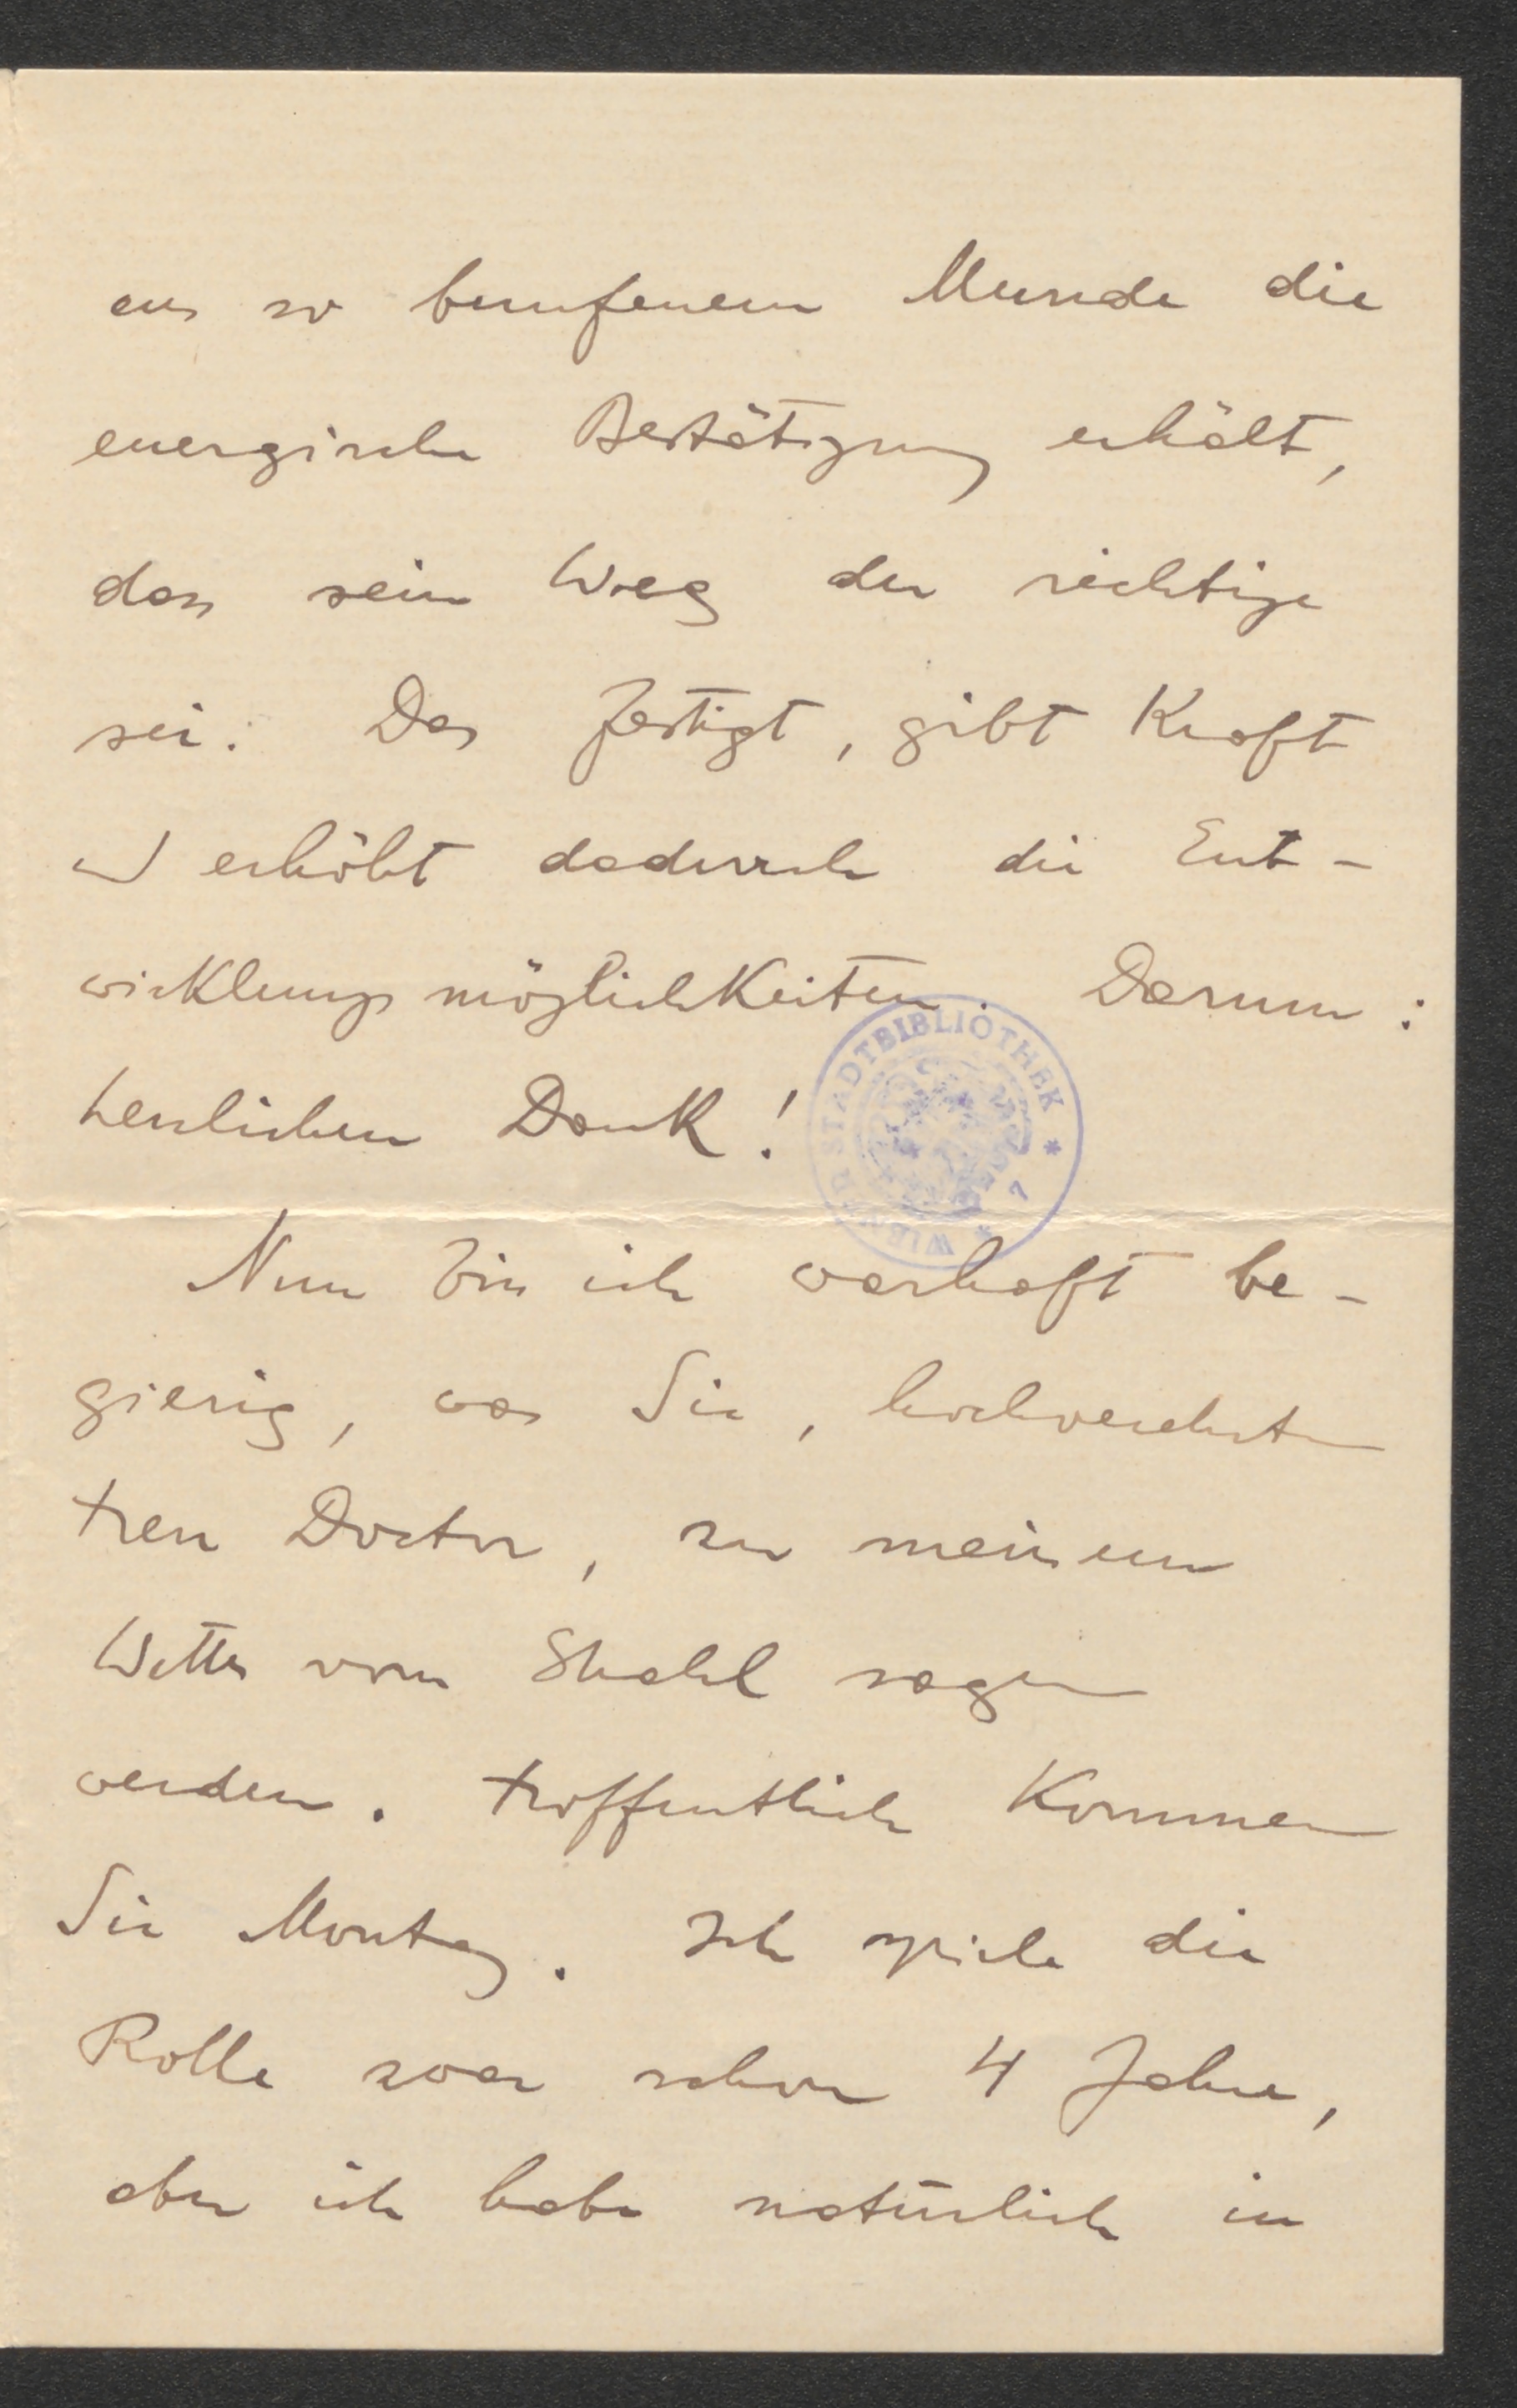 aus so berufenem Munde die
energische Bestätigung erhält,
dass sein Weg der richtige
sei. Das festigt, gibt Kraft
u erhöht dadurch die Ent-
wicklungsmöglichkeiten. Darum:
herzlichen Dank!
WIENER STADTBIBLIOTHEK
Nun bin ich warhaft be-
gierig, was Sie, hochverehrter
Herr Doctor, zu meinem
Wetter vom Strahl sagen
werden. Hoffentlich kommen
Sie Montag. Ich spiele die
Rolle zwar schon 4 Jahre,
aber ich habe natürlich in